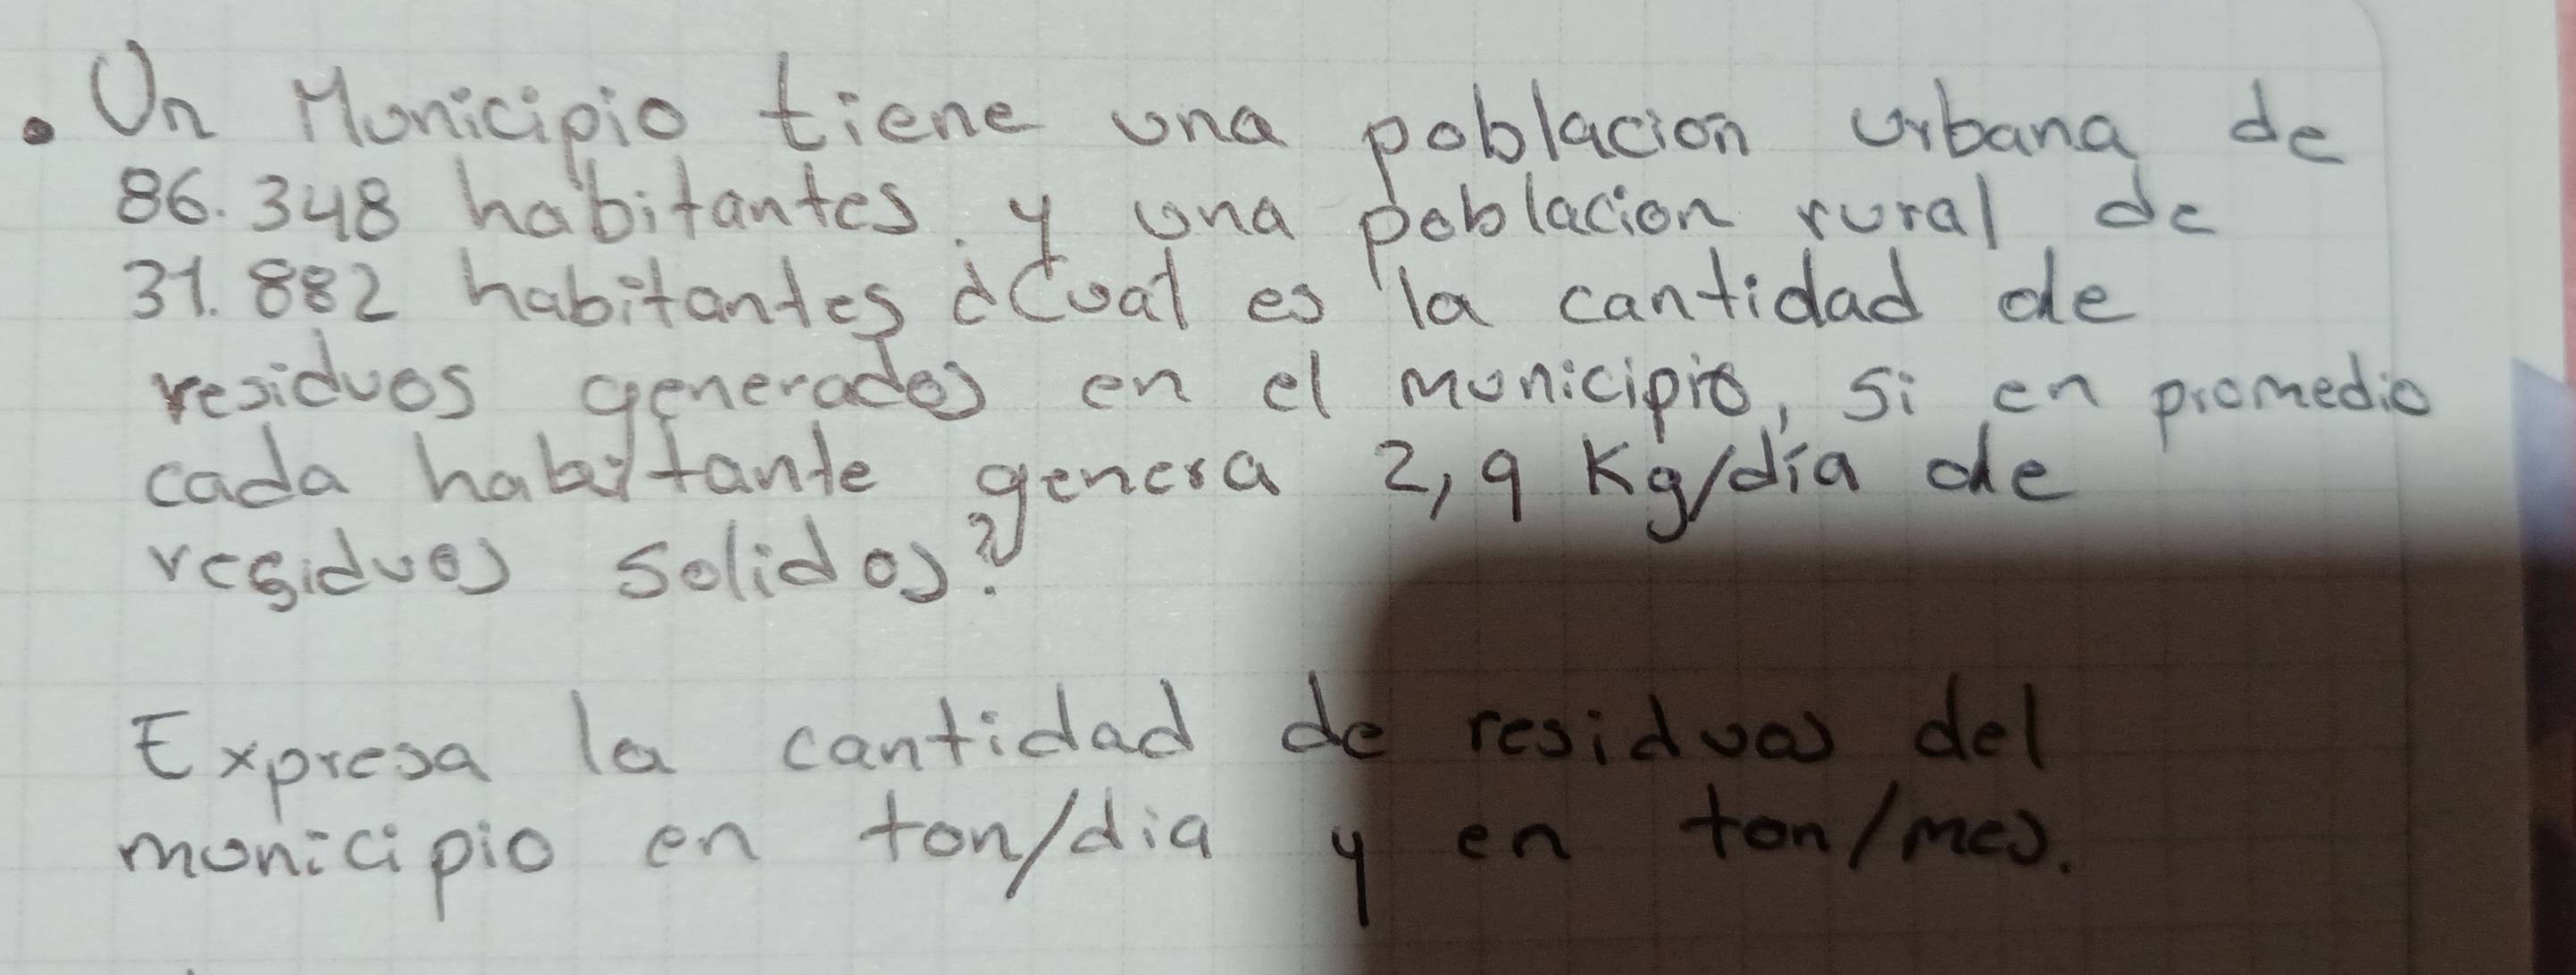 . Un Municipio tiene una poblacion urbana de
86.348 habitantes. y una poblacion rural de
31.882 habitantes ¿Cual es la cantidad de
residuos generados en el municipio, si en promedio
cada habitante genera 2,9 Kg/día de
residuos solidos?
Expresa la cantidad de residuos del
municipio en ton/dia y en ton/mes.